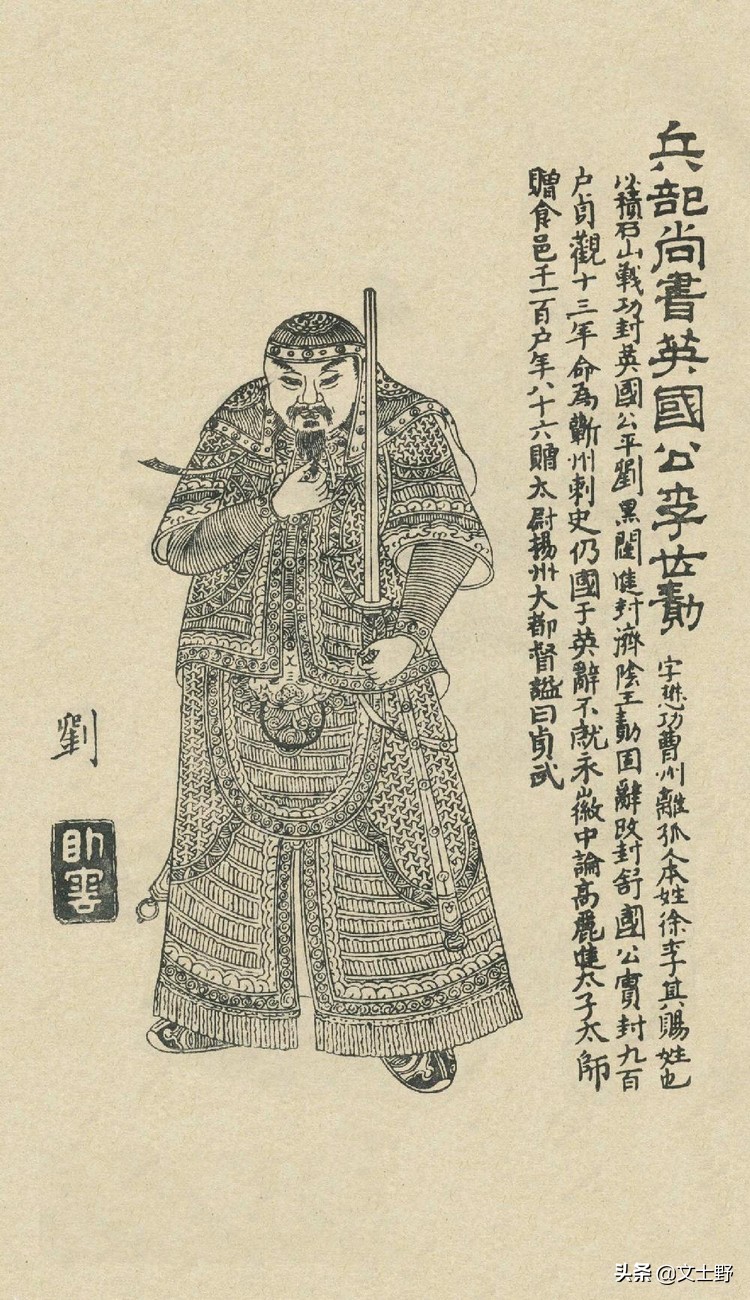 兵部尚書英國公李世勣
字懋功曹州離狐人本姓徐李其賜姓也
以積石山戰功封英國公平劉黑闥進封濟陰王勣固辭改封舒國公實封九百
户貞觀十三年命為蘄州刺史仍國于英辭不就永徽中論高麗進太子太師
贈食邑千一百户年八十六贈太尉揚州大都督謚曰貞武
劉
頭条 @文士野